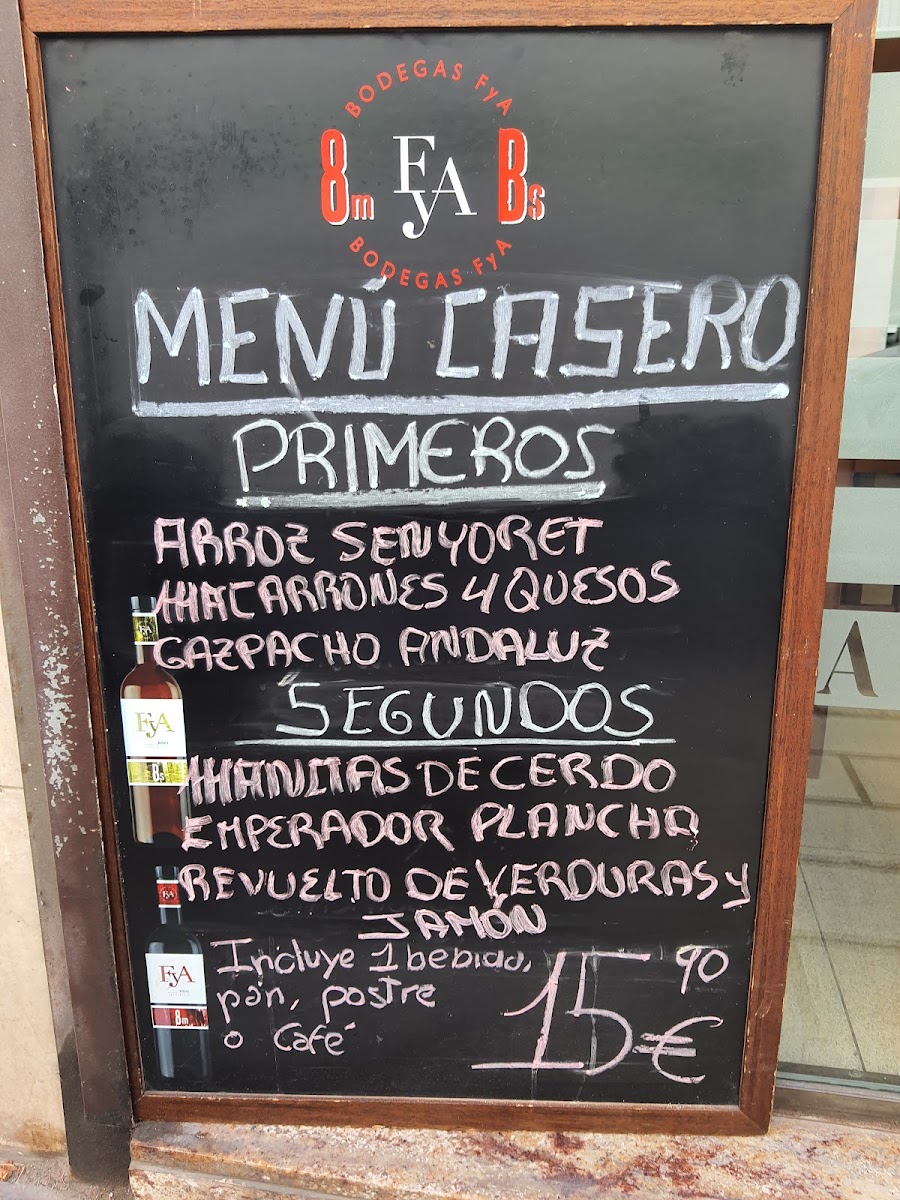 BODEGAS FyA
8m FyA Bs
BODEGAS FyA
MENÚ CASERO
PRIMEROS
ARROZ SENYORET
MACARRONES 4 QUESOS
GAZPACHO ANDALUZ
SEGUNDOS
MANITAS DE CERDO
EMPERADOR PLANCHA
REVUELTO DE VERDURAS Y
JAMÓN
Incluye 1 bebida,
pan, postre
o Café
15 90 €
FyA
FyA
Bs
FyA
FyA
8m
A